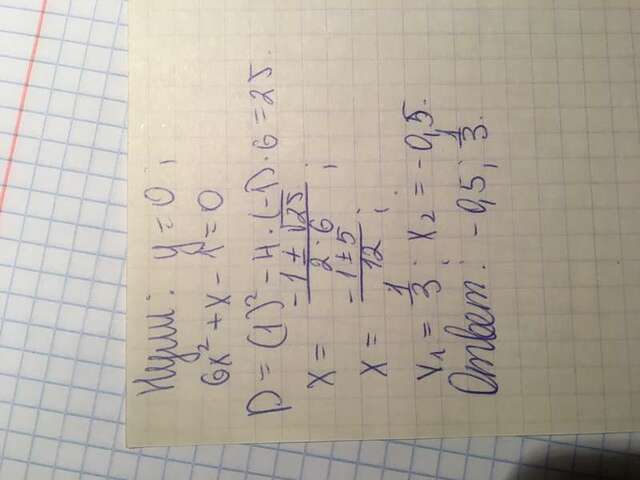 Нули: y = 0;
6x² + x - 1 = 0
D = (1)² - 4·(-1)·6 = 25.
x = (-1 ± √25)/(2·6);
x = (-1 ± 5)/12;
x₁ = 1/3; x₂ = -0,5.
Ответ: -0,5; 1/3.